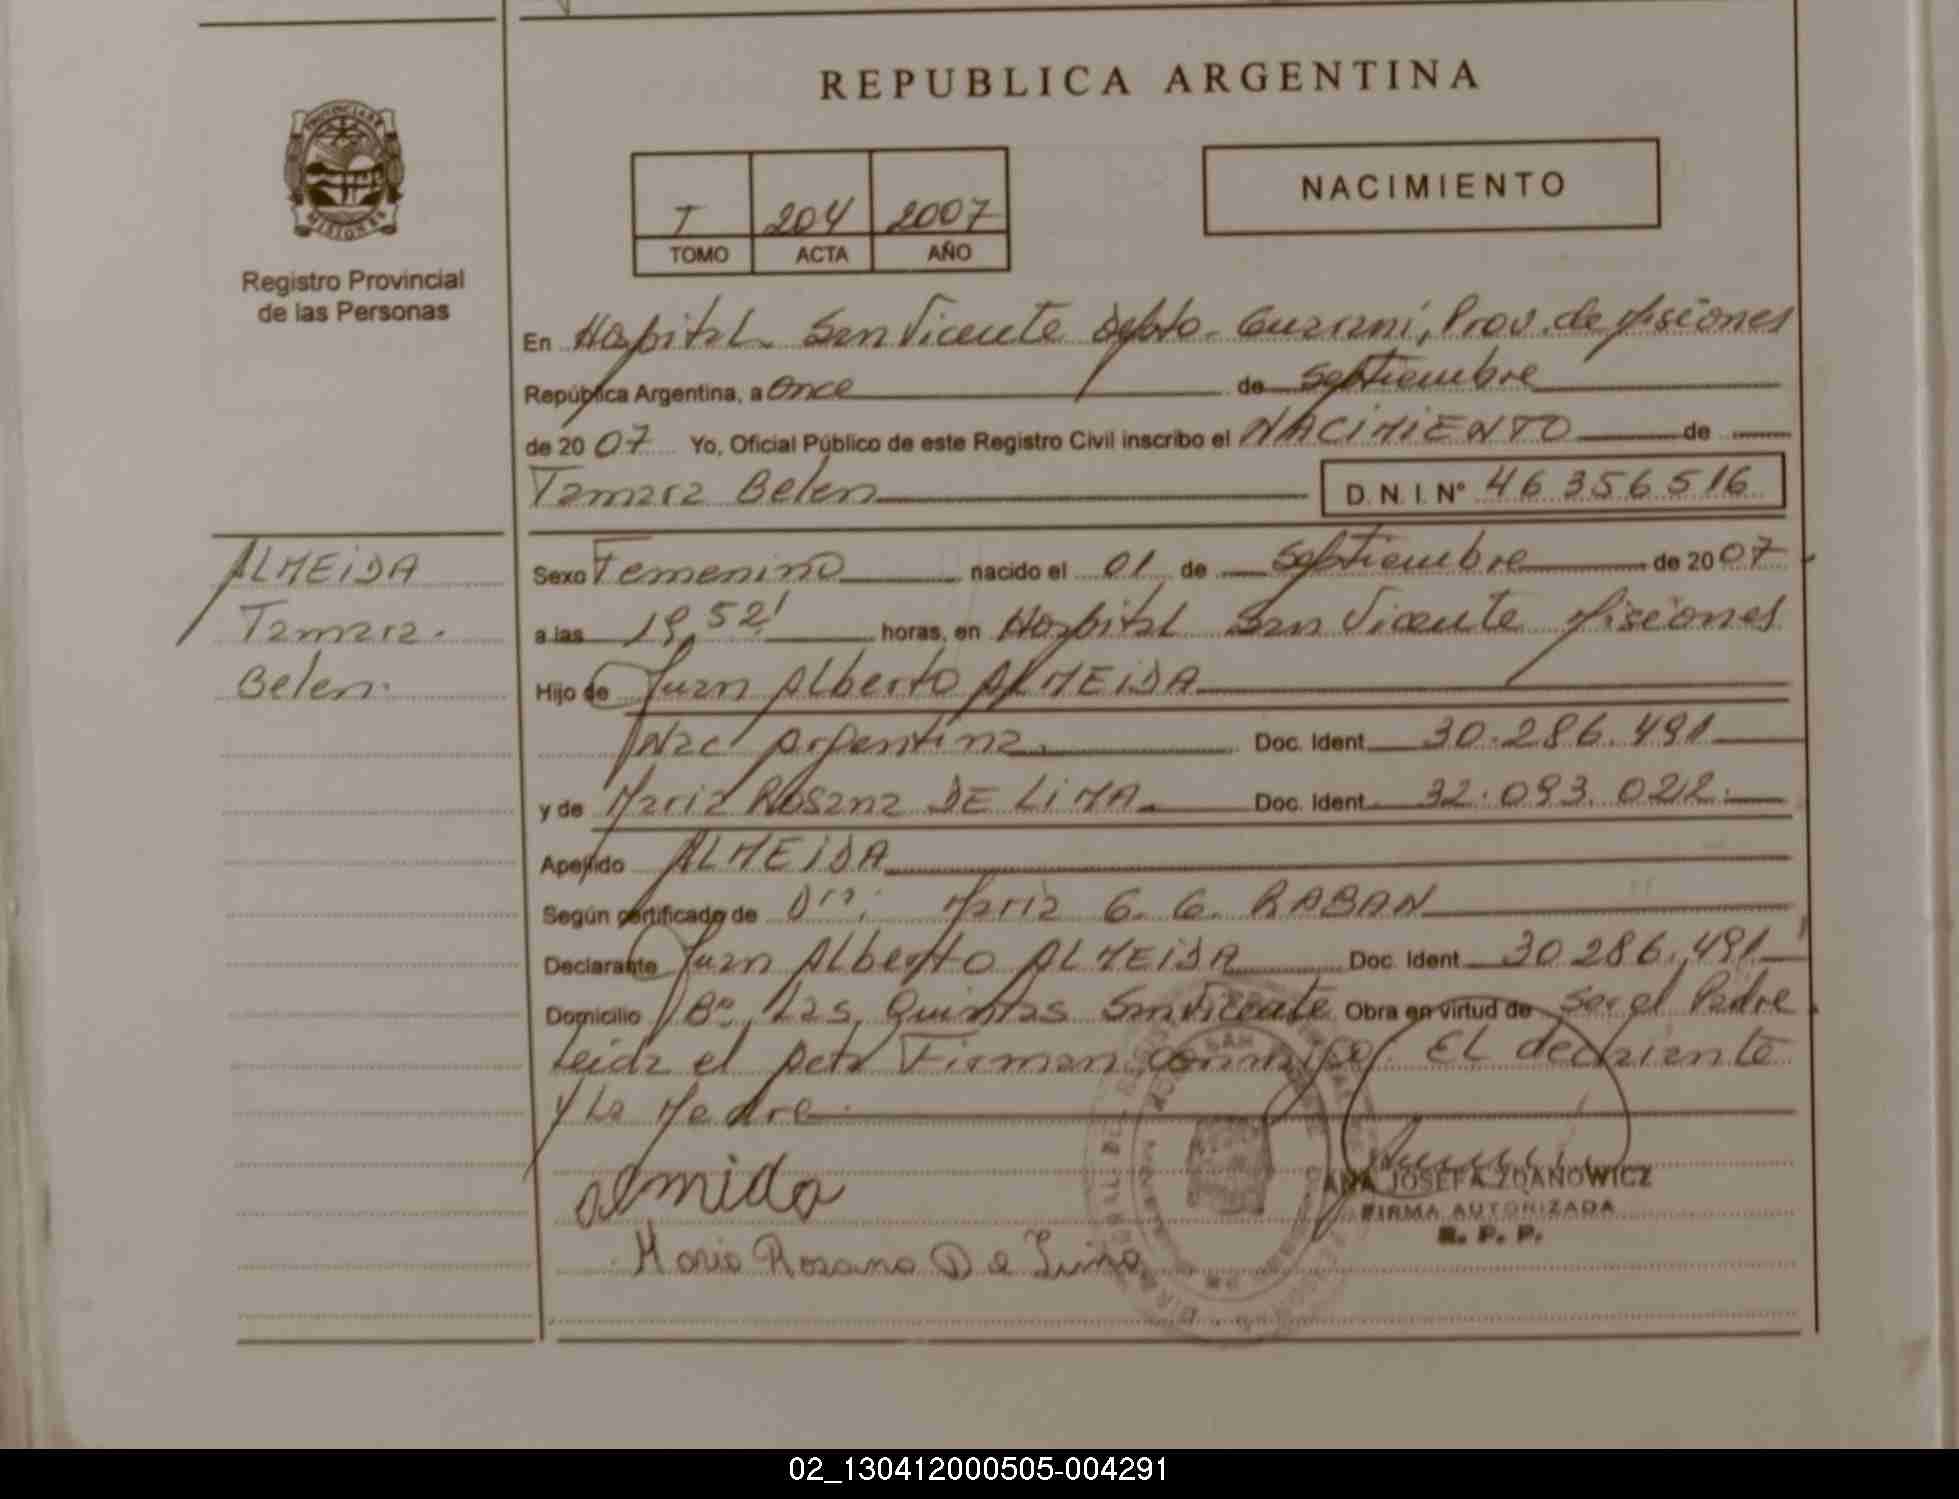 REPUBLICA ARGENTINA
PROVINCIA DE
MISIONES
Registro Provincial
de las Personas
T 204 2007
TOMO ACTA AÑO
NACIMIENTO
En Hospital San Vicente Depto. Guaraní, Prov. de Misiones
República Argentina, a Once de Septiembre
de 2007 Yo, Oficial Público de este Registro Civil inscribo el NACIMIENTO de
Tamara Belen D. N. I. N° 46 356 516
ALMEIDA
Tamara.
Belen.
Sexo Femenino nacido el 01 de Septiembre de 2007
a las 19,52' horas, en Hospital San Vicente Misiones
Hijo de Juan Alberto ALMEIDA
Nac Argentina. Doc. Ident. 30.286.491
y de Maria Rosana DE LIMA Doc. Ident. 32.093.022.
Apellido ALMEIDA
Según certificado de Dra: Maria G. G. RABAN
Declarante Juan Alberto ALMEIDA Doc. Ident. 30.286.491
Domicilio B° Las Quintas San Vicente Obra en virtud de Ser el Padre
Leida el Acta Firman conmigo. EL declarante
y La Madre
Almida
ANA JOSEFA ZDANOWICZ
FIRMA AUTORIZADA
R. P. P.
Maria Rosana De Lima
02_130412000505-004291